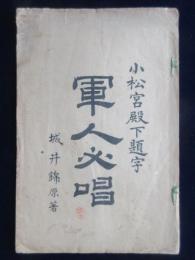 小松宮殿下題字
軍人必唱
城井錦原著